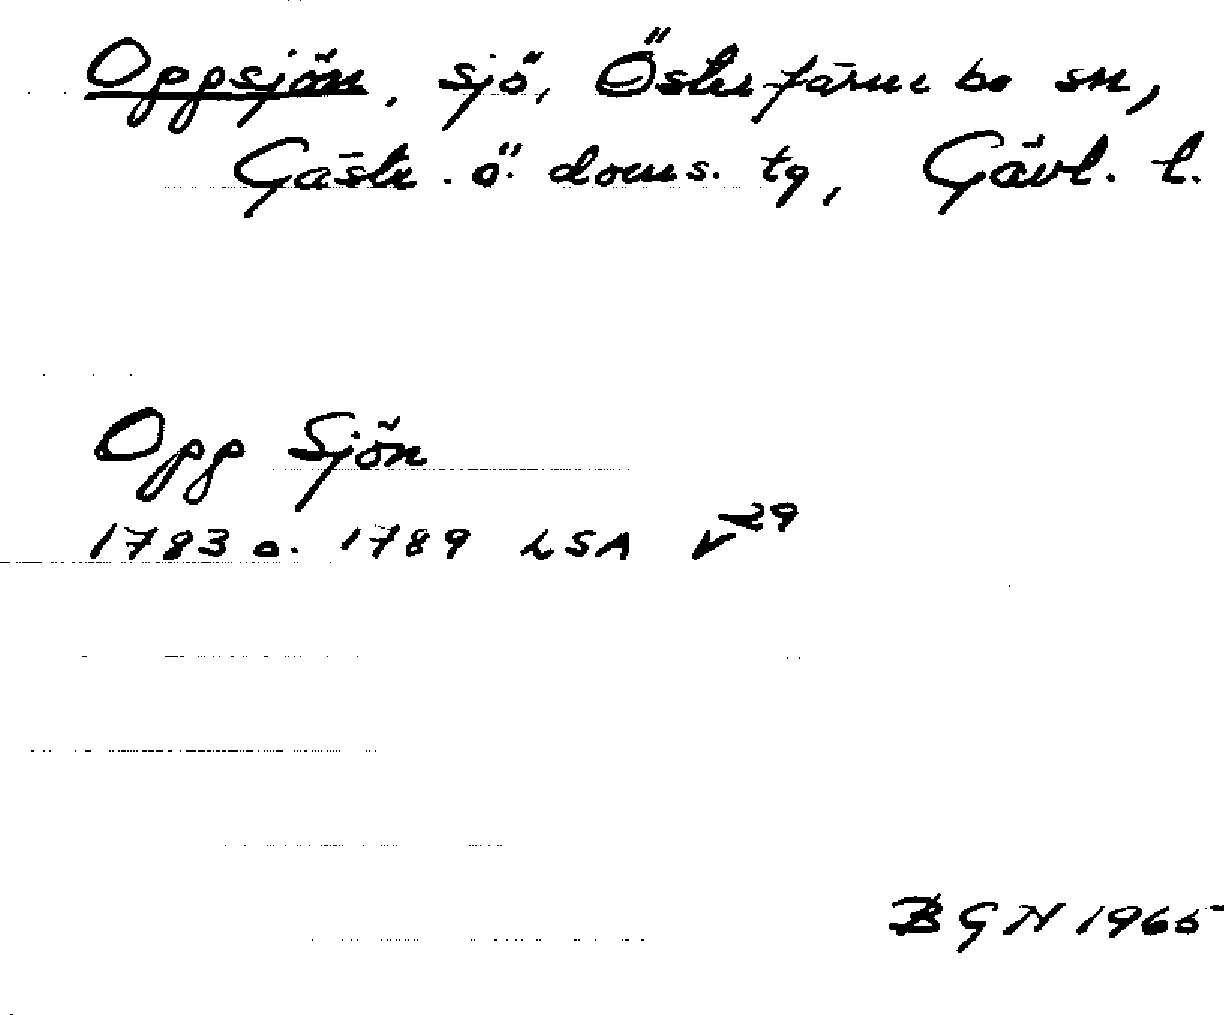 Oppsjön, sjö, Österfärnebo sn,
Gästr. ö. doms. tg, Gävl. l.
Opp Sjön
1783 o. 1789 LSA V 29
BGN 1965